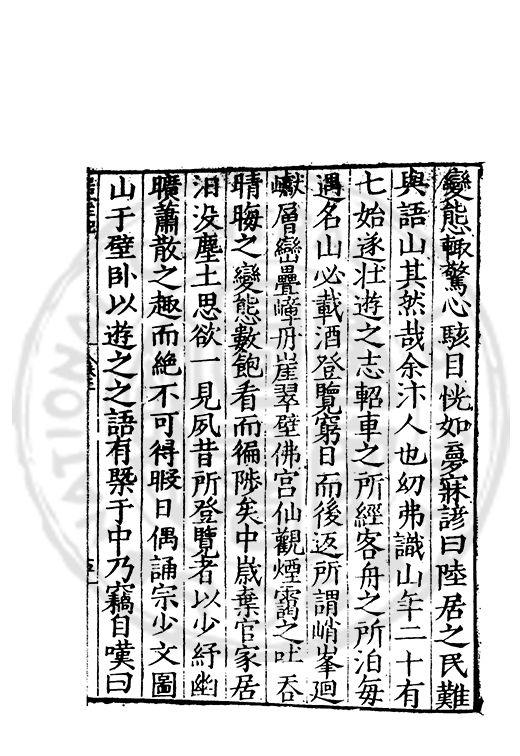 變態輙驚心駭目恍如夢寐諺曰陸居之民難
與語山其然哉余汴人也幼弗識山年二十有
七始遂壯遊之志軺車之所經客舟之所泊每
遇名山必載酒登覽窮日而後返所謂峭峯廻
巘層巒疊嶂丹崖翠壁佛宫仙觀煙靄之吐吞
晴晦之變態數飽看而徧陟矣中嵗棄官家居
汨没塵土思欲一見夙昔所登覽者以少紓幽
曠蕭散之趣而絶不可得暇日偶誦宗少文圖
山于壁卧以遊之之語有槩于中乃竊自嘆曰